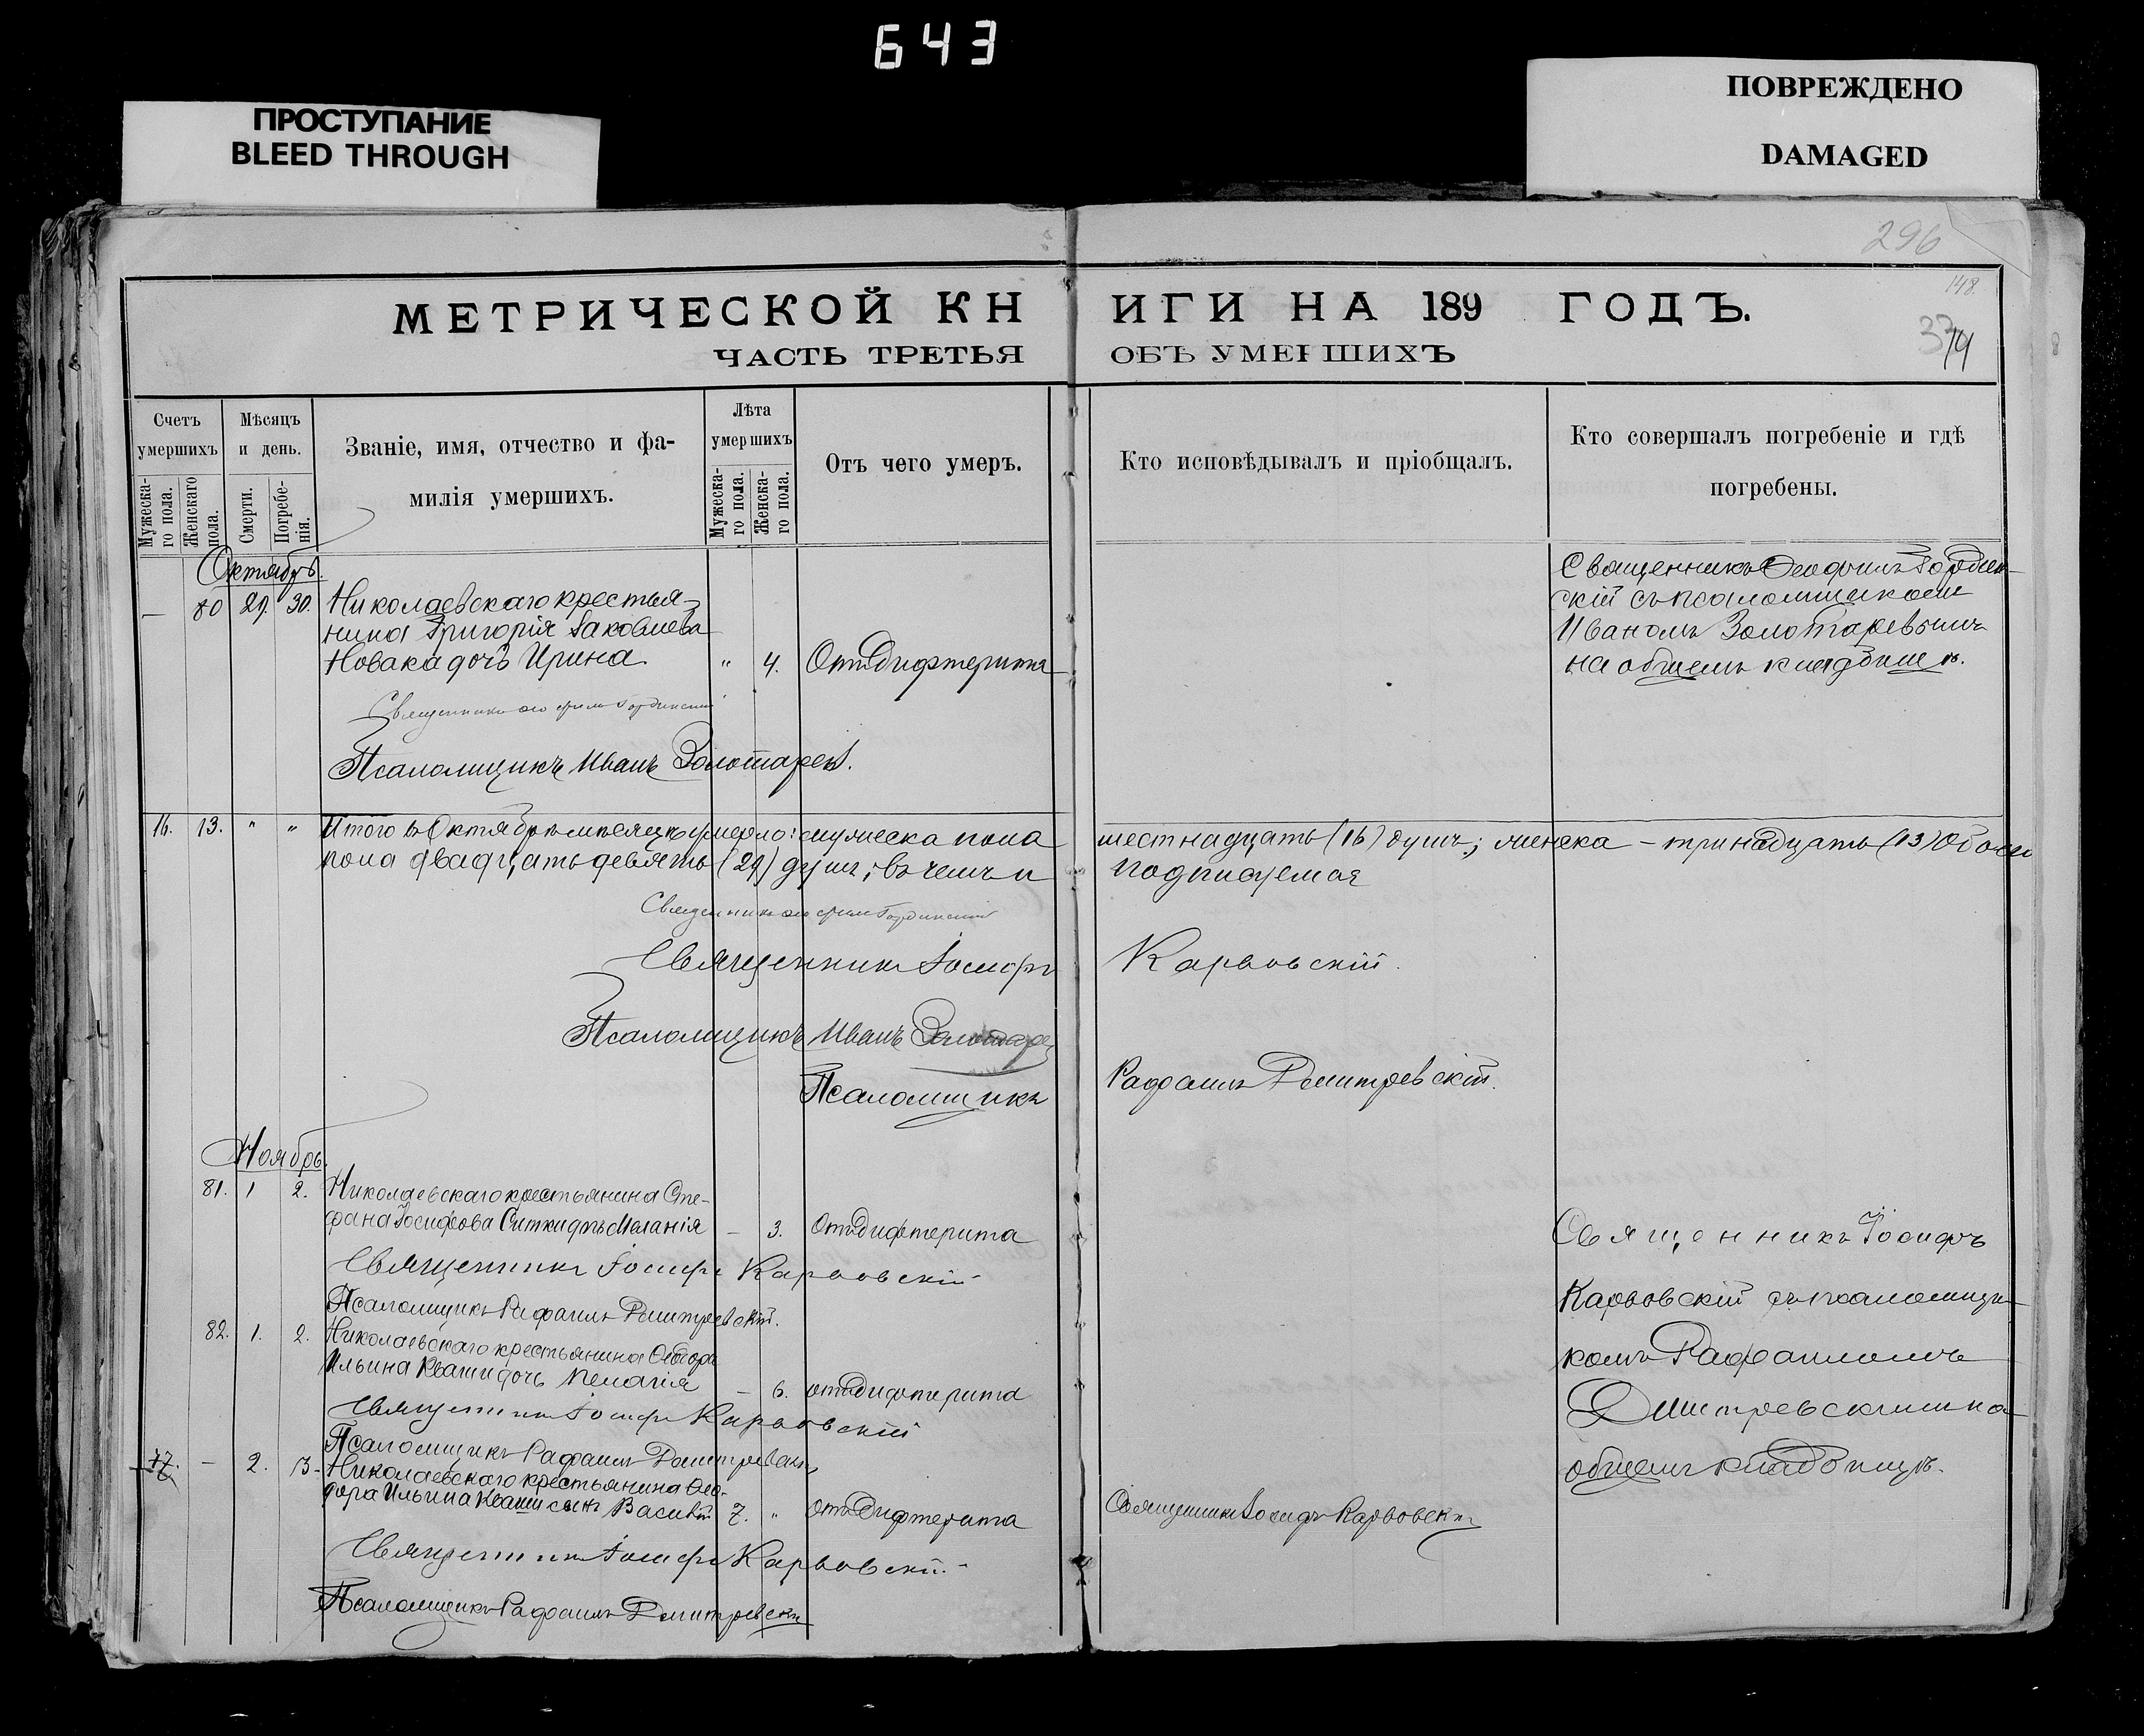 643
ПРОСТУПАНИЕ
BLEED THROUGH
ПОВРЕЖДЕНО
DAMAGED
296
148.
МЕТРИЧЕСКОЙ КНИГИ НА 189 ГОДЪ.
374
ЧАСТЬ ТРЕТЬЯ ОБЪ УМЕРШИХЪ
Счетъ умершихъ
Мужеска-го пола.
Женскаго пола.
Мѣсяцъ и день.
Смерти.
Погребе-нія.
Званіе, имя, отчество и фа-
милія умершихъ.
Лѣта умершихъ
Мужеска-го пола.
Женска-го пола.
Отъ чего умеръ.
Кто исповѣдывалъ и пріобщалъ.
Кто совершалъ погребеніе и гдѣ
погребены.
Октябрь.
— 80 29. 30. Николаевскаго крестья-
нина Григорія Іаковлева
Новака дочь Ирина. " 4. Отъ Дифтерита
Священникъ Ѳеофилъ Гордин-
скій съ псаломщикомъ
Иваномъ Золотаревымъ
на общемъ кладбищѣ.
Священникъ Ѳеофилъ Гординскій
Псаломщикъ Иванъ Золотаревъ.
16. 13. " " Итого въ Октябрѣ мѣсяцѣ умерло: мужеска пола шестнадцать (16) душъ; женска – тринадцать (13) Обоего
пола двадцать девять (29) душъ; въ чемъ и подписуемся
Священникъ Ѳеофилъ Гординскій
Священникъ Іосифъ Карвовскій.
Псаломщикъ Иванъ Золотарев
Псаломщикъ Рафаилъ Димитревскій.
Ноябрь.
81. 1 2. Николаевскаго крестьянина Сте-
фана Іосифова дочь Меланія — 3. Отъ Дифтерита
Священникъ Іосифъ Карвовскій
Псаломщикъ Рафаилъ Димитревскій.
82. 1. 2. Николаевскаго крестьянина Ѳеодора
Ильина Кваши дочь Пелагія — 6. отъ Дифтерита
Священникъ Іосифъ Карвовскій
Псаломщикъ Рафаилъ Димитревскій
77. — 2. 3. Николаевскаго крестьянина Ѳео-
дора Ильина Кваши сынъ Василій 7. " Отъ Дифтерита
Священникъ Іосифъ Карвовскій
Священникъ Іосифъ Карвовскій.
Псаломщикъ Рафаилъ Димитревскій
Священникъ Іосифъ
Карвовскій съ псаломщи-
комъ Рафаиломъ
Димитревскимъ на
общемъ кладбищѣ.